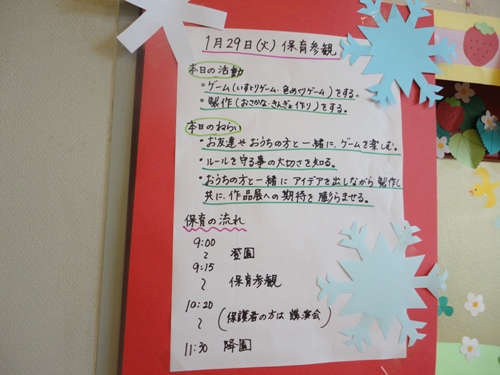 1月29日(火) 保育参観
本日の活動
・ゲーム(いすとりゲーム・色めくりゲーム)をする。
・製作(おさかな・きんぎょ作り)をする。
本日のねらい
・お友達やおうちの方と一緒に、ゲームを楽しむ。
・ルールを守る事の大切さを知る。
・おうちの方と一緒にアイデアを出しながら製作し
共に、作品展への期待を膨らませる。
保育の流れ
9:00
〜 登園
9:15
〜 保育参観
10:20
〜 (保護者の方は講演会)
11:30 降園